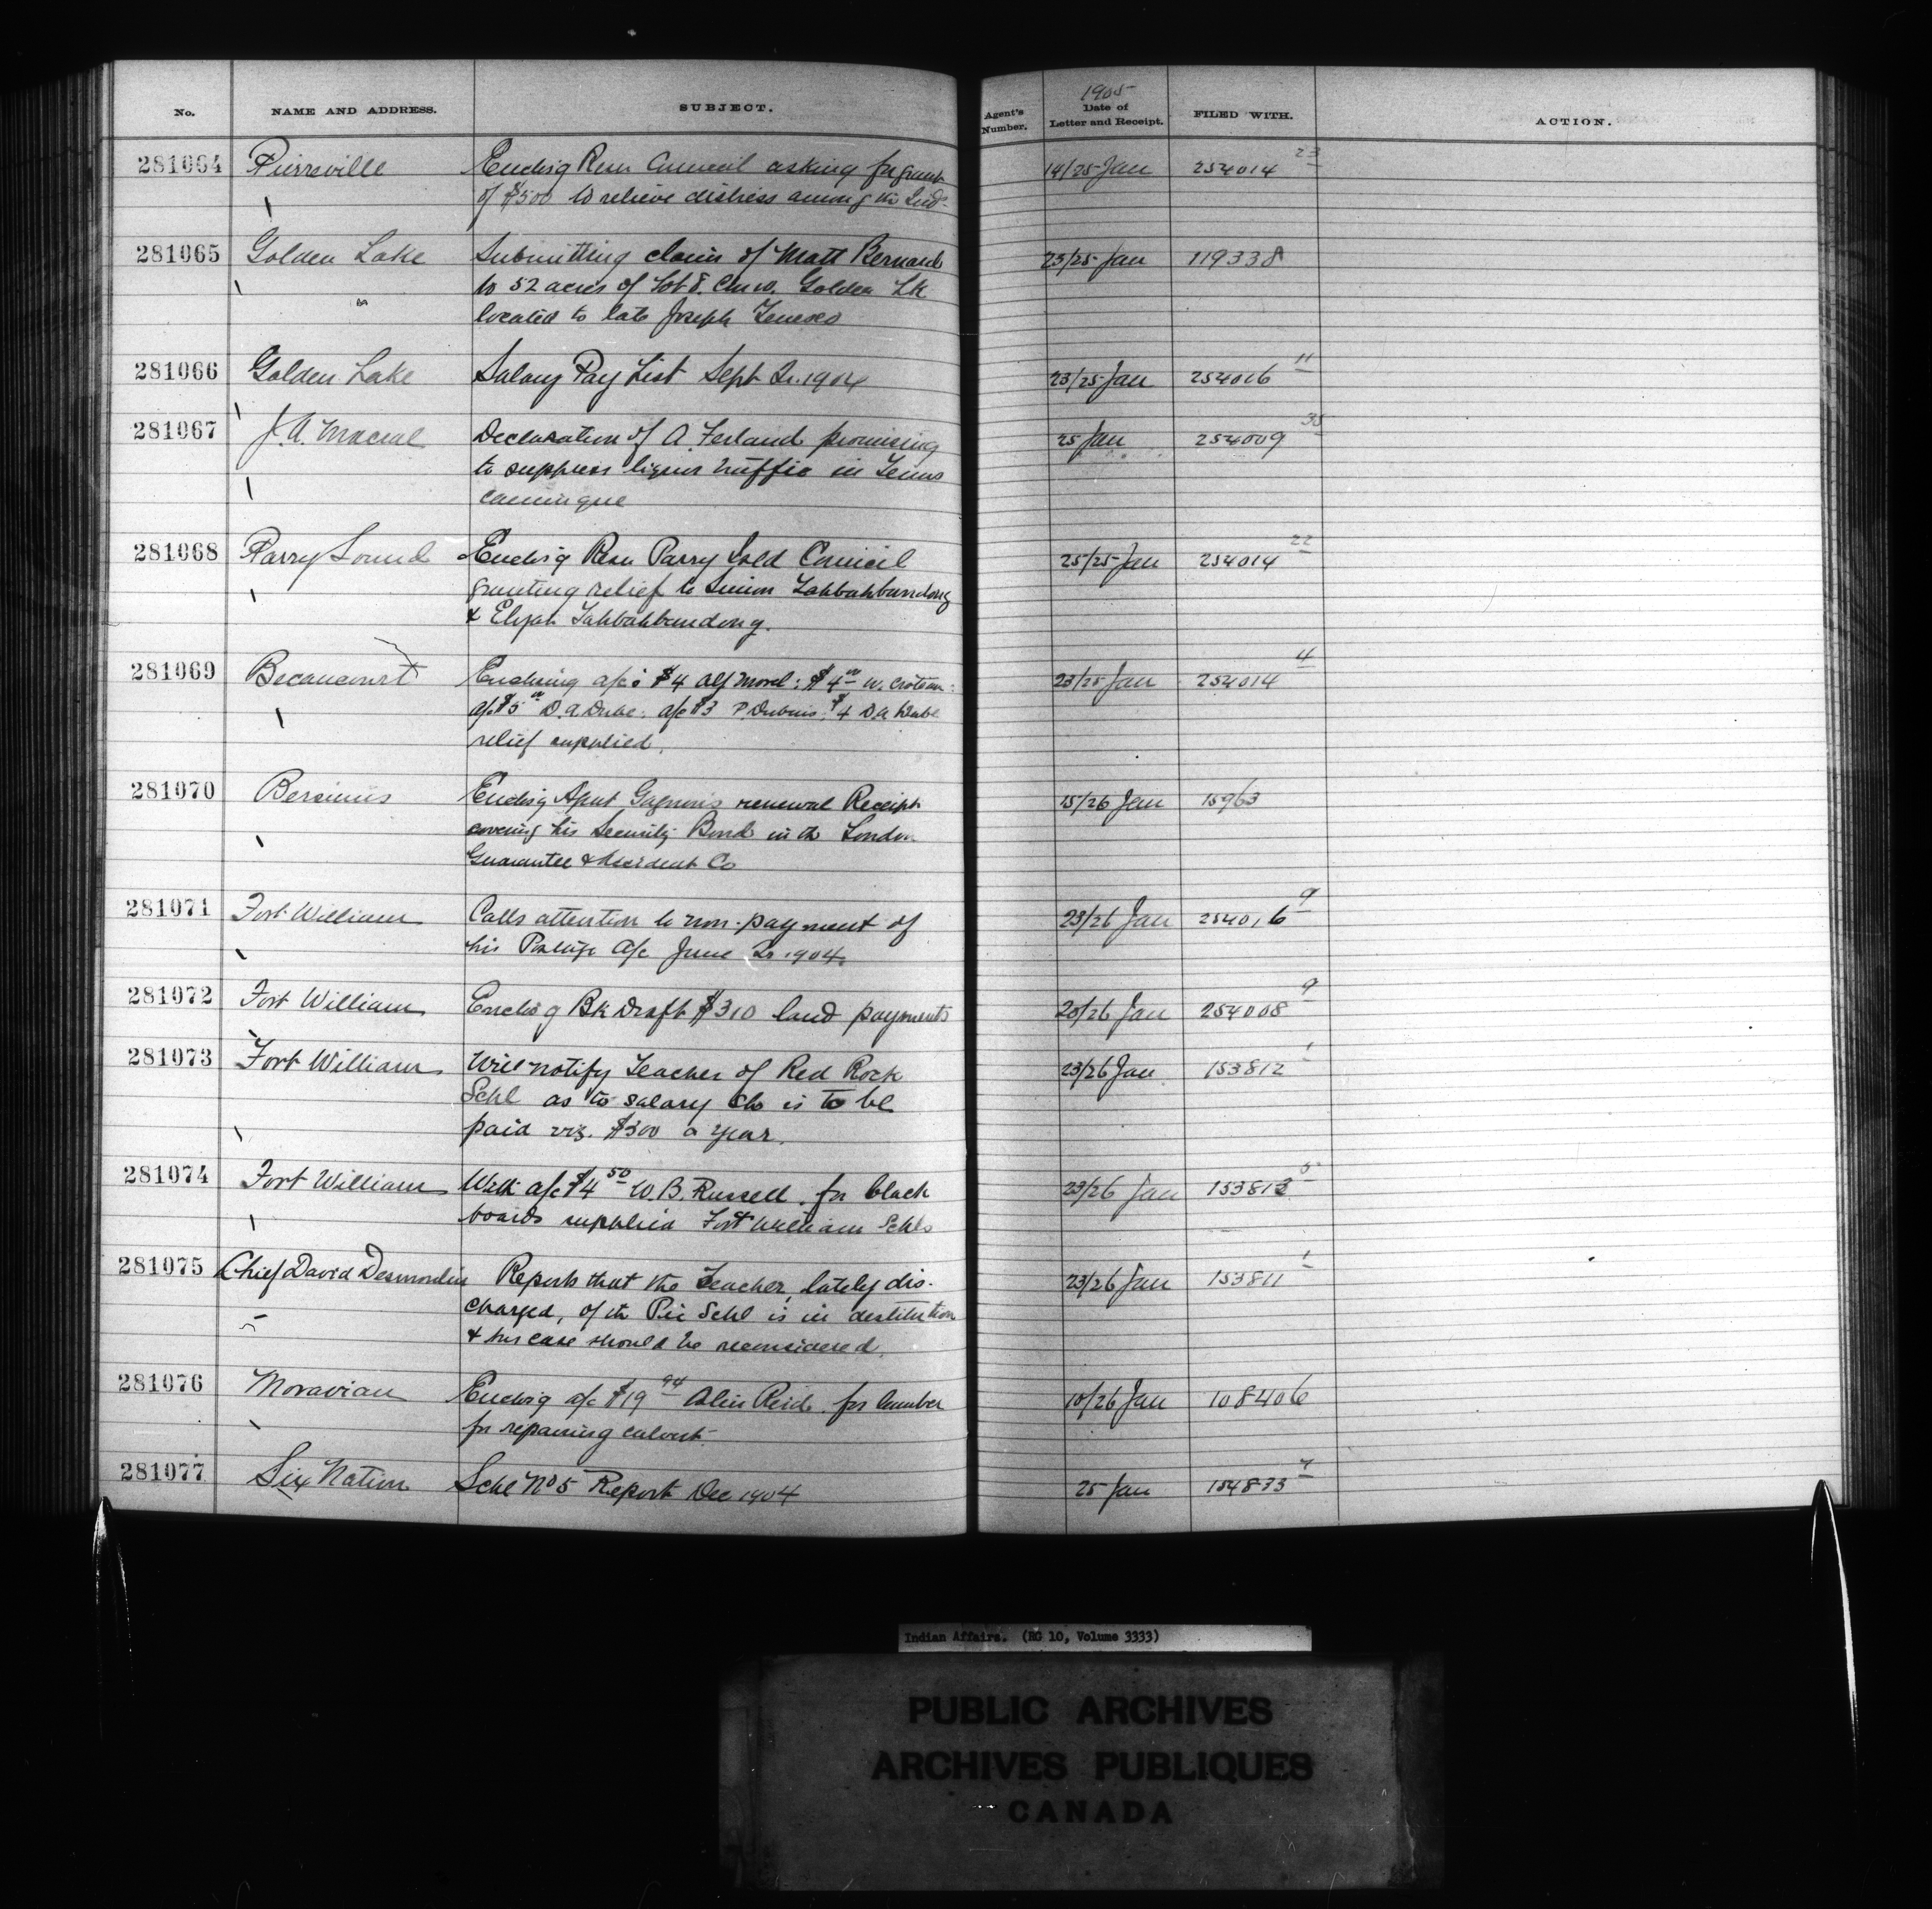 No. NAME AND ADDRESS. SUBJECT. Agent's Number. 1905 Date of Letter and Receipt. FILED WITH. ACTION.
281064 Pierreville Enclosg Resn Council asking for grant 14/25 Jan 254014 23
of $500 to relieve distress among the Inds
281065 Golden Lake Submitting claim of Matt Bernard 23/25 Jan 119338
to 52 acres of Lot 8. Golden Lk
located to late Joseph
281066 Golden Lake Salary Pay List Sept Qr. 1904 23/25 Jan 254016 11
281067 J. A. Declaration of A. Ferland promising 25 Jan 254009 35
to suppress liquor traffic in Temis
camingue
281068 Parry Sound Enclosg Resn Parry Isld Council 25/25 Jan 254014 22
granting relief to Simon Tahbahbundong
& Elijah Tahbahbundong.
281069 Becancourt Enclosing a/cs $4 Alf Morel: $4 00 W. Croteau: 23/25 Jan 254014 4
a/c $5 00 D. A. Dube. a/c $3 P Dubois. $4 D. A. Dube
relief supplied.
281070 Bersimis Enclosg Agent Gagnon's renewal Receipt 15/26 Jan 15963
covering his Security Bond in the London
Guarantee & Accident Co
281071 Fort William Calls attention to non-payment of 23/26 Jan 254016 9
his Postage a/c June Qr 1904.
281072 Fort William Enclosg Bk Draft $310 land payments 20/26 Jan 254008 9
281073 Fort William Will notify Teacher of Red Rock 23/26 Jan 153812 1
Schl as to salary she is to be
paid viz. $300 a year.
281074 Fort William With a/c $4 50 W. B. Russell for black 23/26 Jan 153813 5
boards supplied Fort William Schls
281075 Chief David Desmoulin Reports that the Teacher, lately dis- 23/26 Jan 153811 1
charged, of the Pic Schl is in destitution
& his case should be reconsidered.
281076 Moravian Enclosg a/c $19 94 Colin Reid for lumber 10/26 Jan 108406
for repairing culvert
281077 Six Nation Schl No 5 Report Dec 1904 25 Jan 154833 7
Indian Affairs. (RG 10, Volume 3333)
PUBLIC ARCHIVES
ARCHIVES PUBLIQUES
CANADA